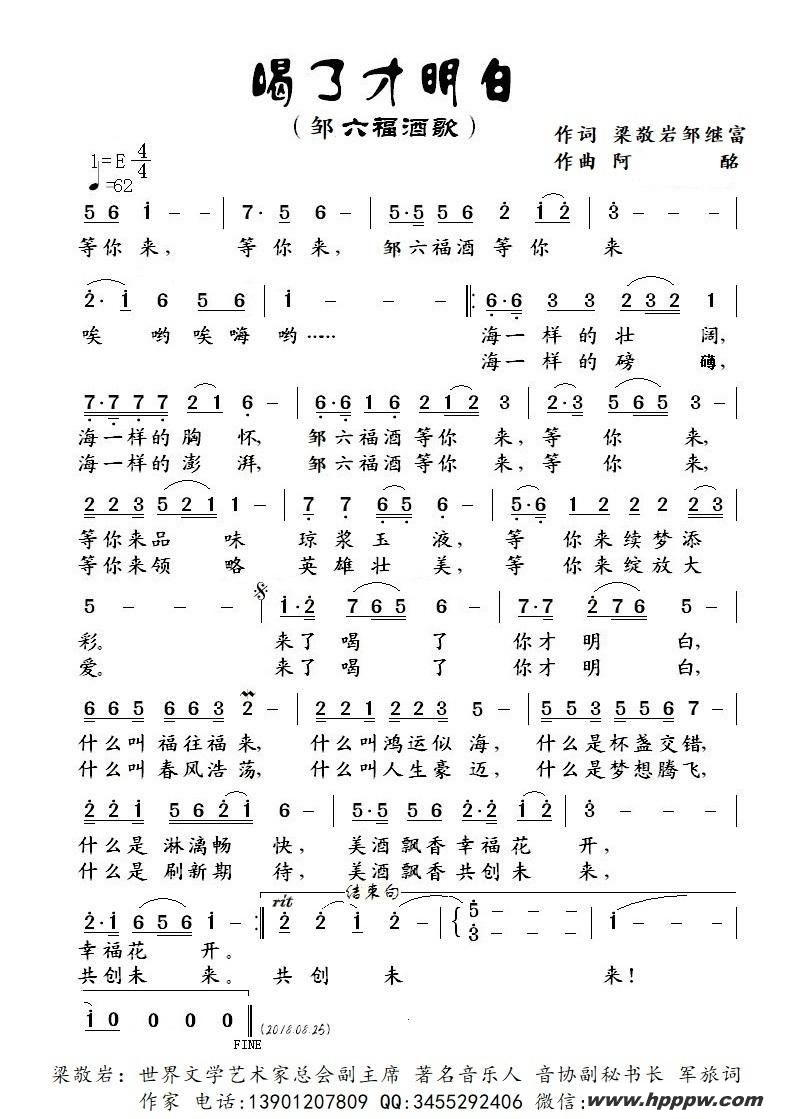 喝了才明白
（邹六福酒歌）
作词 梁敬岩邹继富
作曲 阿 酩
1=E 4/4
♩=62
5 6 i - - | 7· 5 6 - | 5·5 5 6 2 i 2 | 3 - - - |
等你来， 等你来， 邹六福酒等你 来
2·i 6 5 6 | i - - - ‖: 6·6 3 3 2 3 2 1 |
唉 哟唉嗨哟…… 海一样的壮 阔，
海一样的磅 礴，
7·7 7 7 2 1 6 - | 6·6 1 6 2 1 2 3 | 2·3 5 6 5 3 |
海一样的胸 怀， 邹六福酒等你 来，等 你 来，
海一样的澎 湃， 邹六福酒等你 来，等 你 来，
2 2 3 5 2 1 1 - | 7 7 6 5 6 | 5·6 1 2 2 2 |
等你来品 味 琼浆玉 液， 等 你来续梦添
等你来领 略 英雄壮 美， 等 你来绽放大
5 - - - | i·2 7 6 5 6 - | 7·7 2 7 6 5 - |
彩。 来了喝 了 你才明 白，
爱。 来了喝 了 你才明 白，
6 6 5 6 6 3 2 - | 2 2 1 2 2 3 5 - | 5 5 3 5 5 6 7 - |
什么叫福往福来， 什么叫鸿运似海， 什么是杯盏交错，
什么叫春风浩荡， 什么叫人生豪迈， 什么是梦想腾飞，
2 2 i 5 6 2 i 6 - | 5·5 5 6 2·2 i 2 | 3 - - - |
什么是淋漓畅 快， 美酒飘香幸福花 开，
什么是刷新期 待， 美酒飘香共创未 来，
rit 结束句
2·i 6 5 6 i - :‖ 2 2 i i 2 - | 5 3 - - - | i - - - |
幸福花 开。
共创未 来。 共 创 未 来！
i 0 0 0 0 ‖ (2018.08.25)
FINE
梁敬岩：世界文学艺术家总会副主席 著名音乐人 音协副秘书长 军旅词
作家 电话:13901207809 QQ:3455292406 微信:
www.hpppw.com